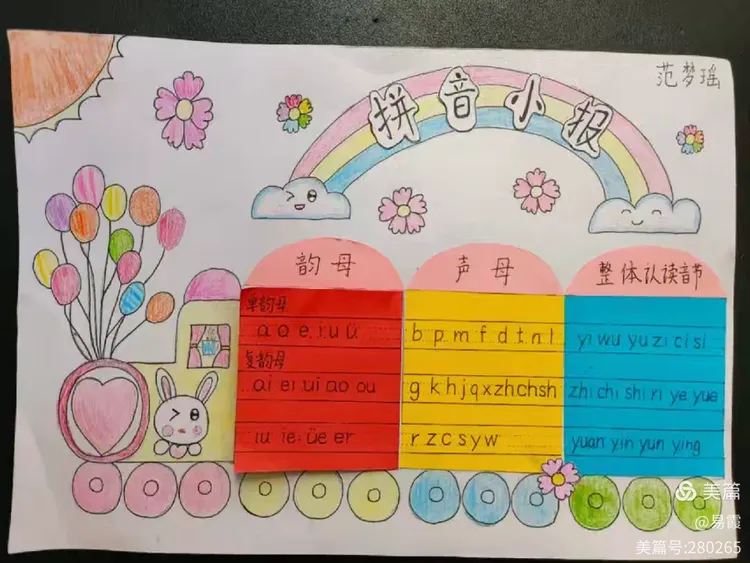 范梦瑶
拼音小报
韵母
声母
整体认读音节
单韵母
a o e i u ü
复韵母
ai ei ui ao ou
iu ie üe er
b p m f d t n l
g k h j q x zh ch sh
r z c s y w
yi wu yu zi ci si
zhi chi shi ri ye yue
yuan yin yun ying
美篇
@易霞
美篇号:280265